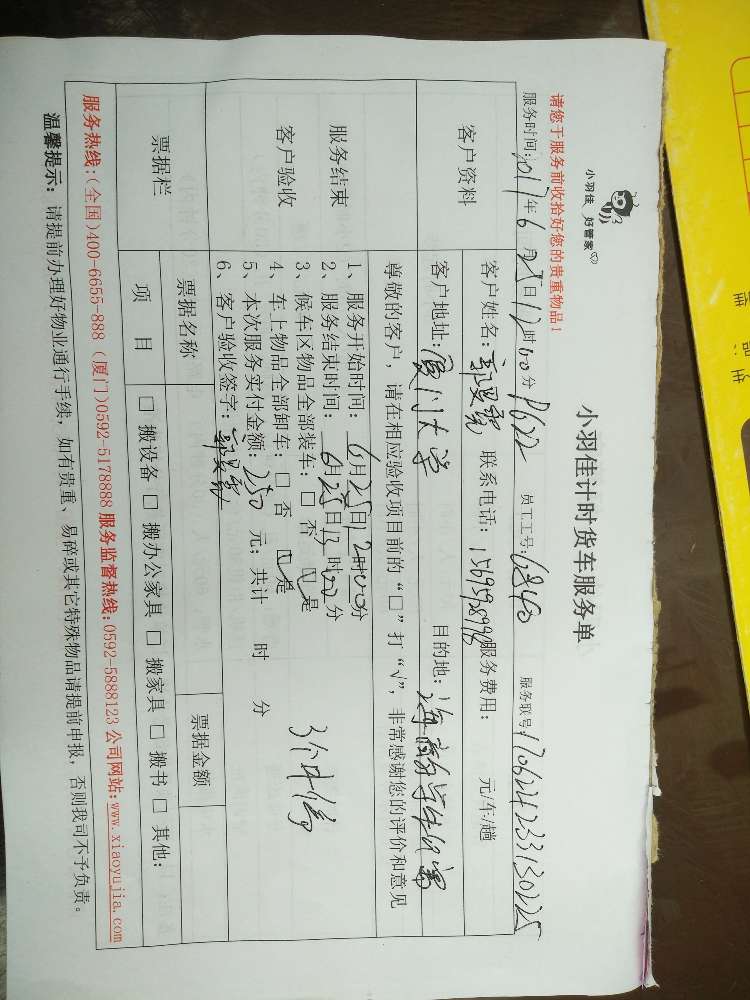 小羽佳 好管家
小羽佳计时货车服务单
请您于服务前收拾好您的贵重物品!
服务时间:2017年6月25日12时00分 P622 员工工号:6840 服务联号:170624233130225
客户资料
客户姓名: 联系电话: 服务费用: 元/车/趟
客户地址:厦门大学 目的地:海
服务结束
客户验收
尊敬的客户,请在相应验收项目前的“□”打“√”,非常感谢您的评价和意见
1、服务开始时间:6月25日12时00分
2、服务结束时间:6月25日13时00分
3、候车区物品全部装车:□ 否 ☑ 是
4、车上物品全部卸车:□ 否 ☑ 是
5、本次服务实付金额:250 元;共计 时 分
6、客户验收签字:
票据栏
票据名称 票据金额
项 目 □ 搬设备 □ 搬办公家具 □ 搬家具 □ 搬书 □ 其他:
服务热线:(全国)400-6655-888 (厦门)0592-5178888 服务监督热线:0592-5888123 公司网站:www.xiaoyujia.com
温馨提示:请提前办理好物业通行手续,如有贵重、易碎或其它特殊物品请提前申报,否则我司不予负责。